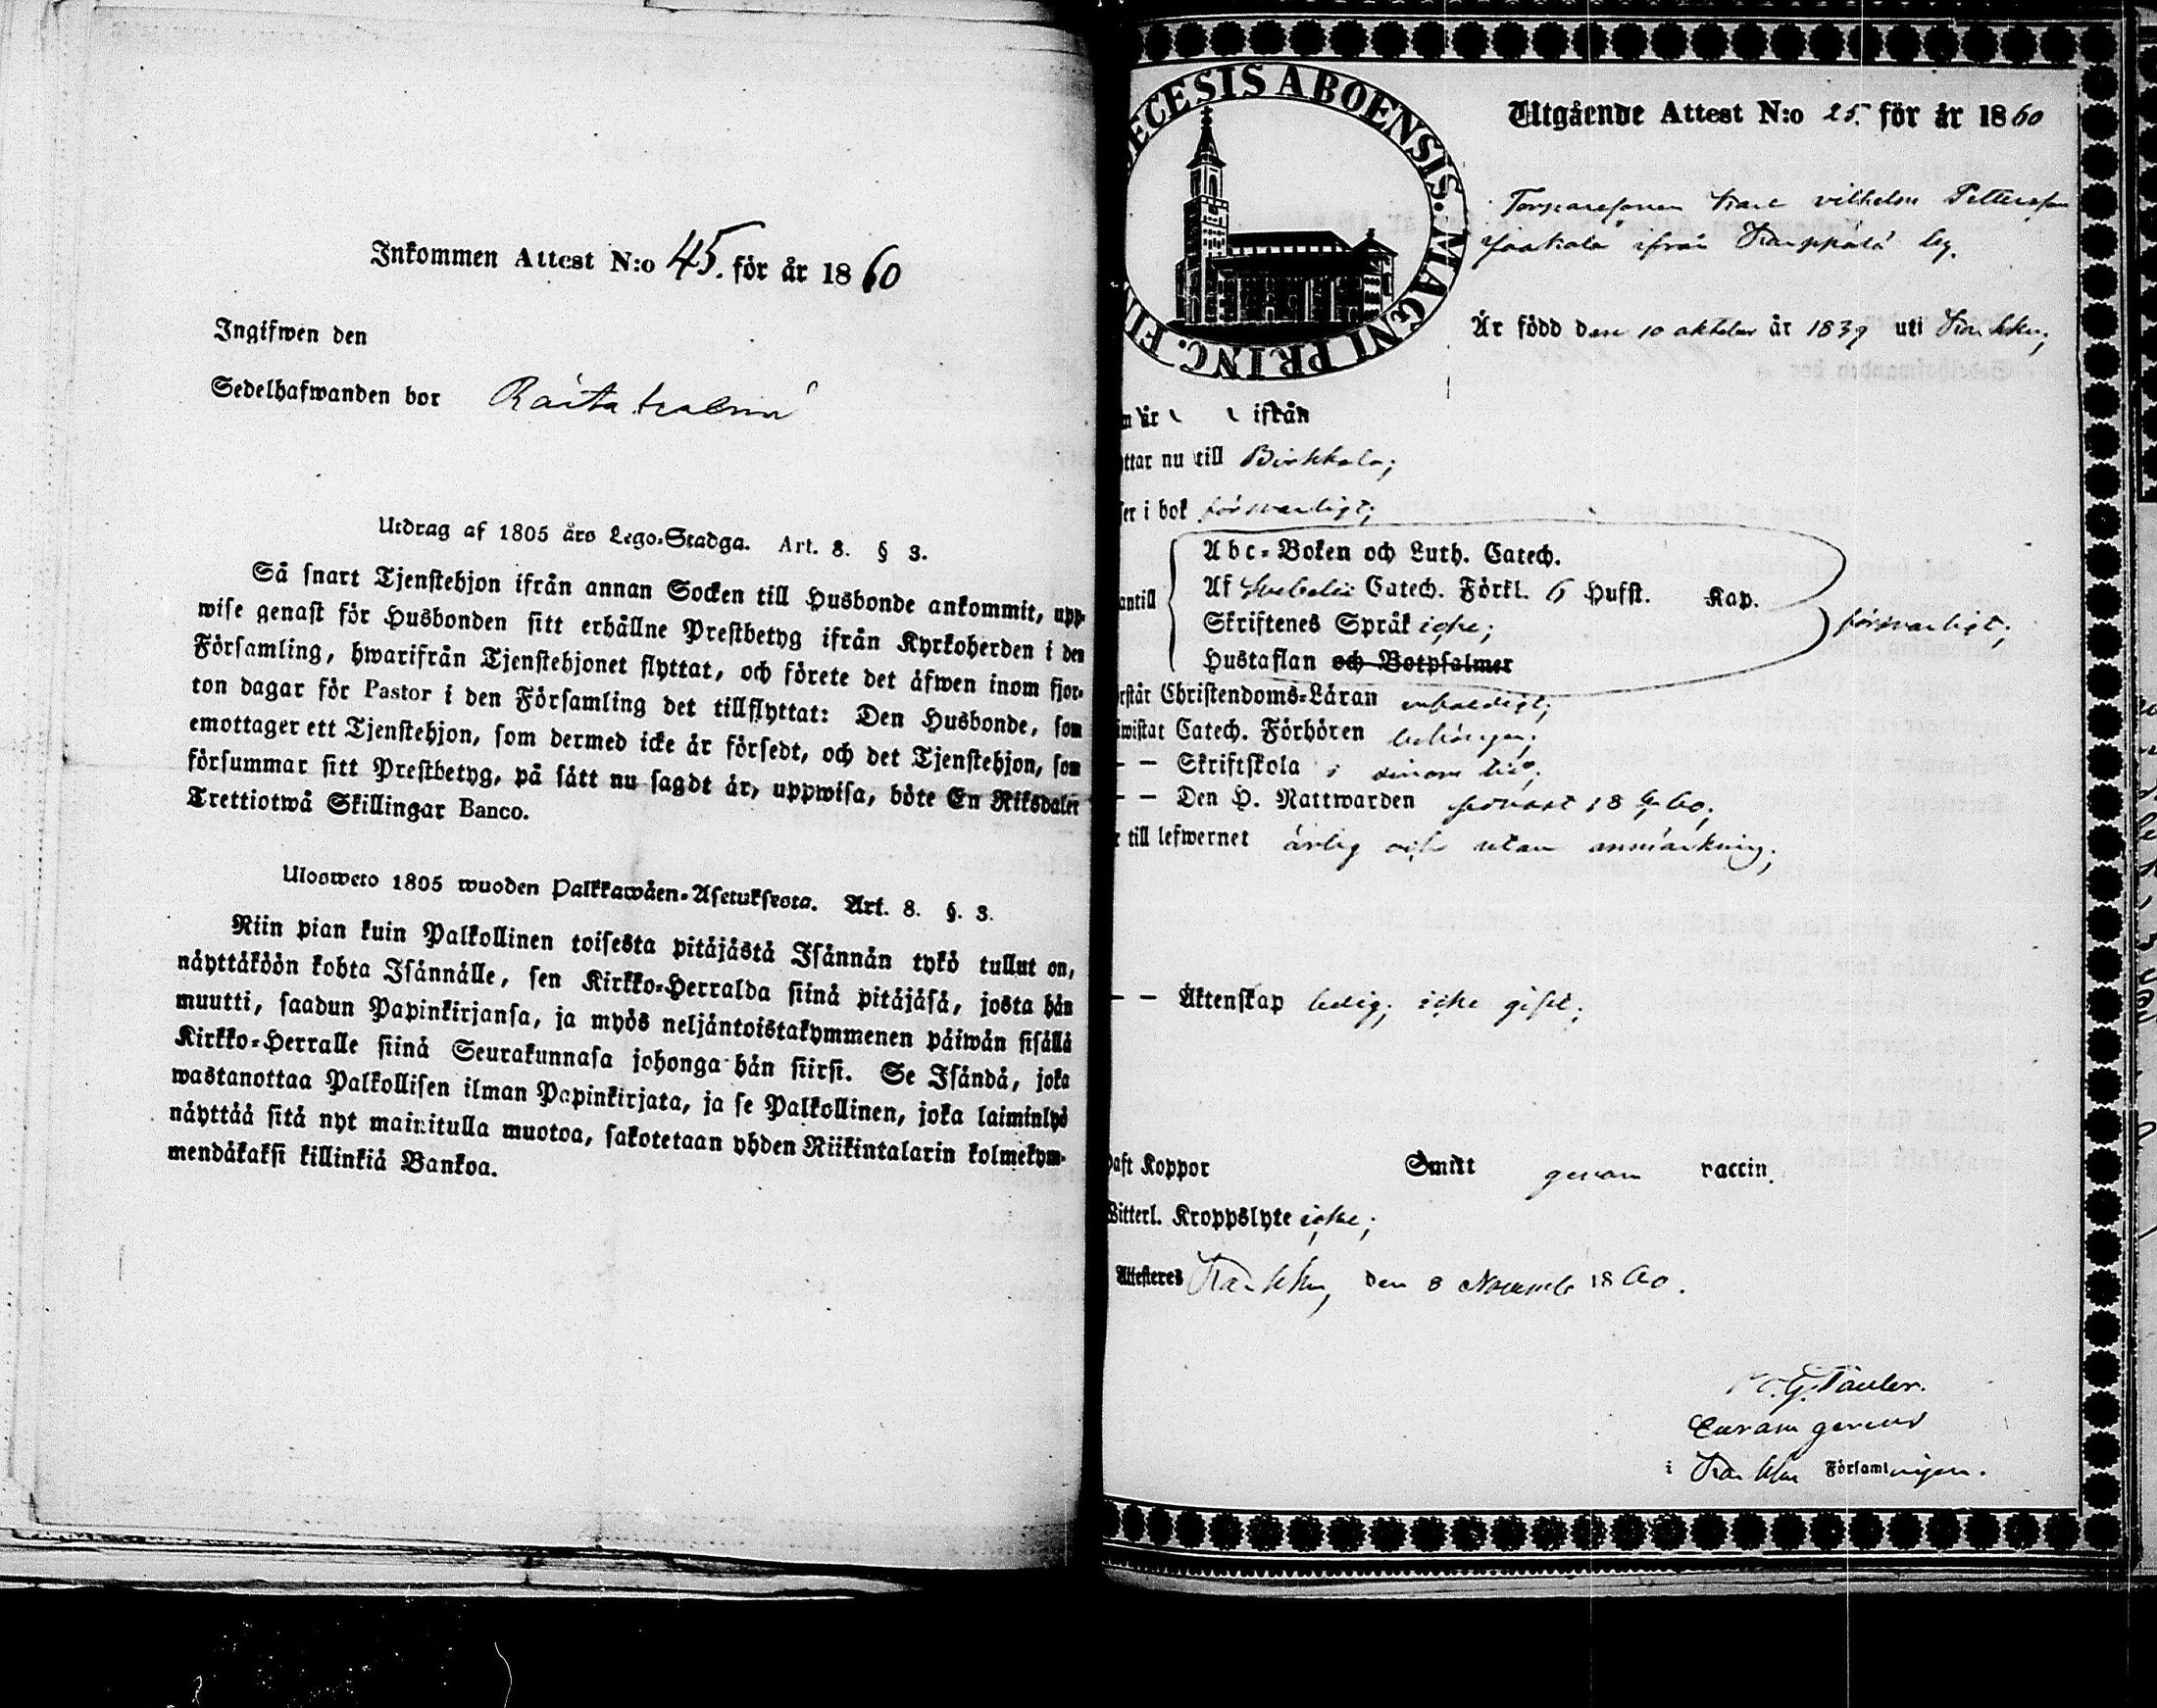 Inkommen Attest N:o 45. för år 1860
Ingifwen den
Sedelhafwanden bor
Utdrag af 1805 års Lego-Stadga. Art. 8. § 3.
Så snart Tjenstehjon ifrån annan Socken till Husbonde ankommit, upp-
wise genast för Husbonden sitt erhållne Prestbetyg ifrån Kyrkoherden i den
Församling, hwarifrån Tjenstehjonet flyttat, och förete det äfwen inom fjor-
ton dagar för Pastor i den Församling det tillflyttat: Den Husbonde, som
emottager ett Tjenstehjon, som dermed icke är försedt, och det Tjenstehjon, som
försummar sitt Prestbetyg, på sätt nu sagdt är, uppwisa, böte En Riksdaler
Trettiotwå Skillingar Banco.
Ulosweto 1805 wuoden Palkkawäen-Asetuksesta. Art. 8. §. 3.
Niin pian kuin Palkollinen toisesta pitäjästä Isännän tykö tullut on,
näyttäköön kohta Isännälle, sen Kirkko-Herralda siinä pitäjäsä, josta hän
muutti, saadun Papinkirjansa, ja myös neljäntoistakymmenen päiwän sisällä
Kirkko-Herralle siinä Seurakunnasa johonga hän siirsi. Se Isändä, joka
wastanottaa Palkollisen ilman Papinkirjata, ja se Palkollinen, joka laiminlyö
näyttää sitä nyt mainitulla muotoa, sakotetaan yhden Riikintalarin kolmekym-
mendäkaksi killinkiä Bankoa.
ECESIS ABOENSIS. MAGNI PRINC. FIN
Utgående Attest N:o 25. för år 1860
Torparesonen Karl vilhelm Pettersson
ifrån by.
Är född den 10 oktober år 1839 uti Karkku;
är ifrån
ttar nu till Birkkala;
ser i bok försvarligt;
Abc-Boken och Luth. Catech.
antill Af Svebelii Catech. Förkl. 6 Hufst. Kap. försvarligt;
Skriftenes Språk icke;
Hustaflan och Botpsalmer
rstår Christendoms-Läran
iwistat Catech. Förhören behörigen;
— — Skriftskola i sinom tid;
— — Den H. Nattwarden 18 60;
till lefwernet ärlig och utan anmärkning;
— — Äktenskap ledig; icke gift;
haft Koppor Smitt genom vaccin.
Witterl. Kroppslyte icke;
Attesteres Karkku, den 8 November 1860.
Curam gerens
i Karkku Församlingen.